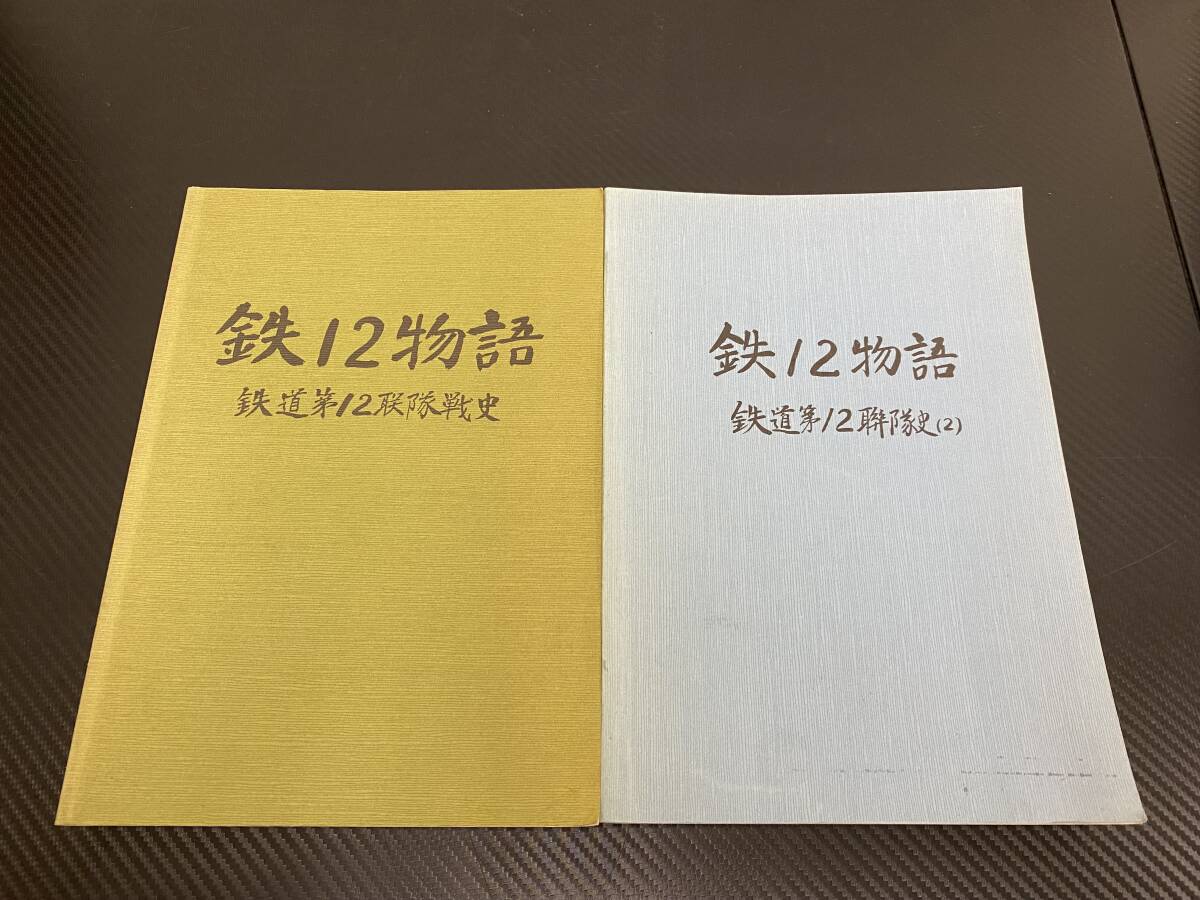 鉄12物語
鉄道第12联隊戦史
鉄12物語
鉄道第12聯隊史(2)